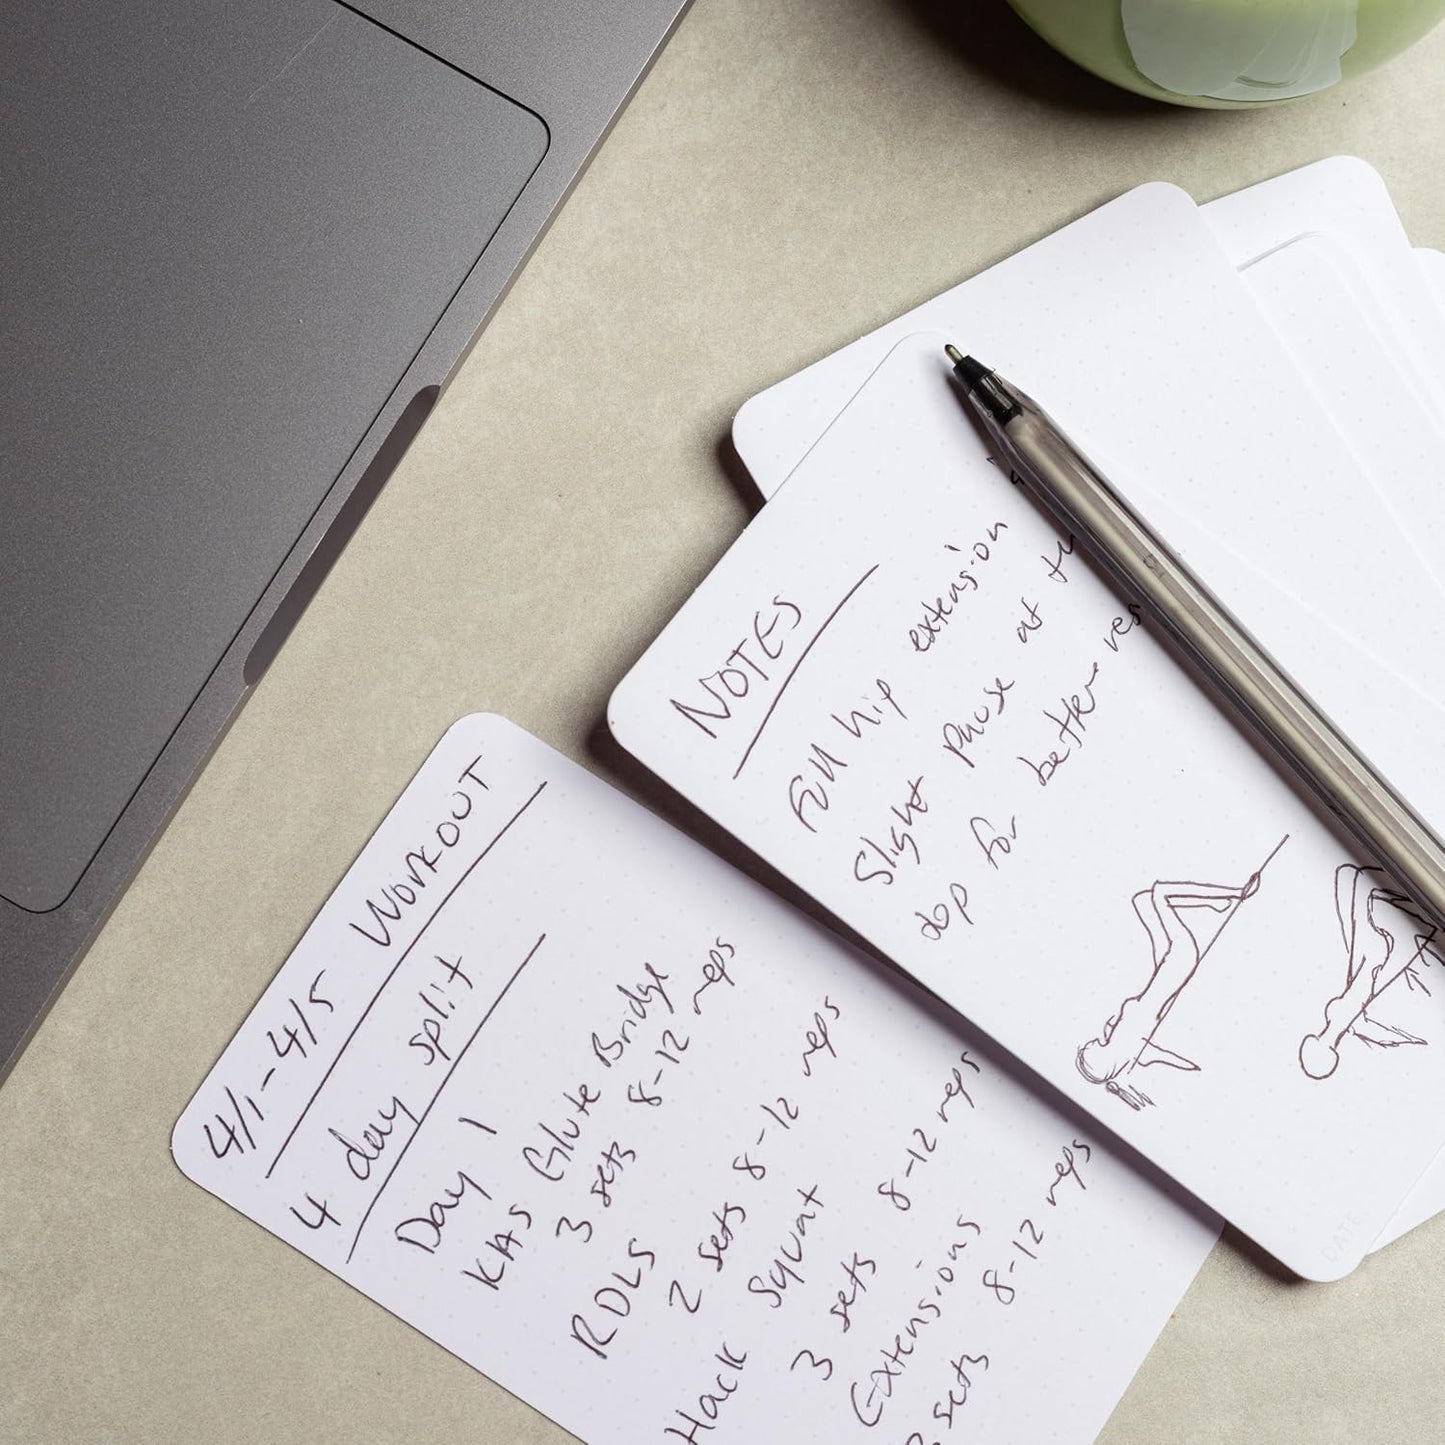 4/1-4/5 Workout
4 day split
Day 1
KAS Glute Bridge
3 sets 8-12 reps
RDLS
2 sets 8-12 reps
Hack Squat
3 sets 8-12 reps
Extensions
sets 8-12 reps
NOTES
Full hip extension
Slight pause at
for better
DATE